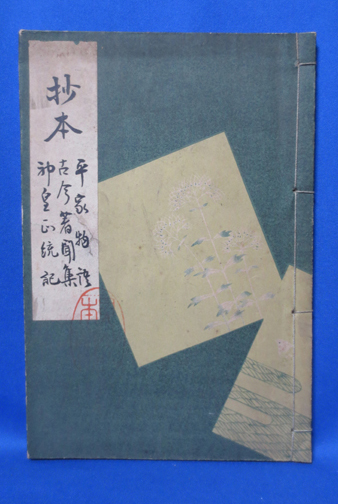 抄本
平家物語
古今著聞集
神皇正統記
本